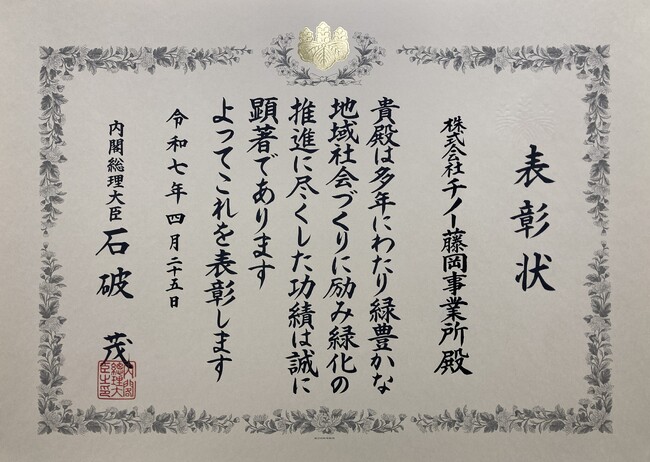 表彰状
株式会社チノー藤岡事業所殿
貴殿は多年にわたり緑豊かな
地域社会づくりに励み緑化の
推進に尽くした功績は誠に
顕著であります
よってこれを表彰します
令和七年四月二十五日
内閣総理大臣 石破 茂
内閣総理大臣之印